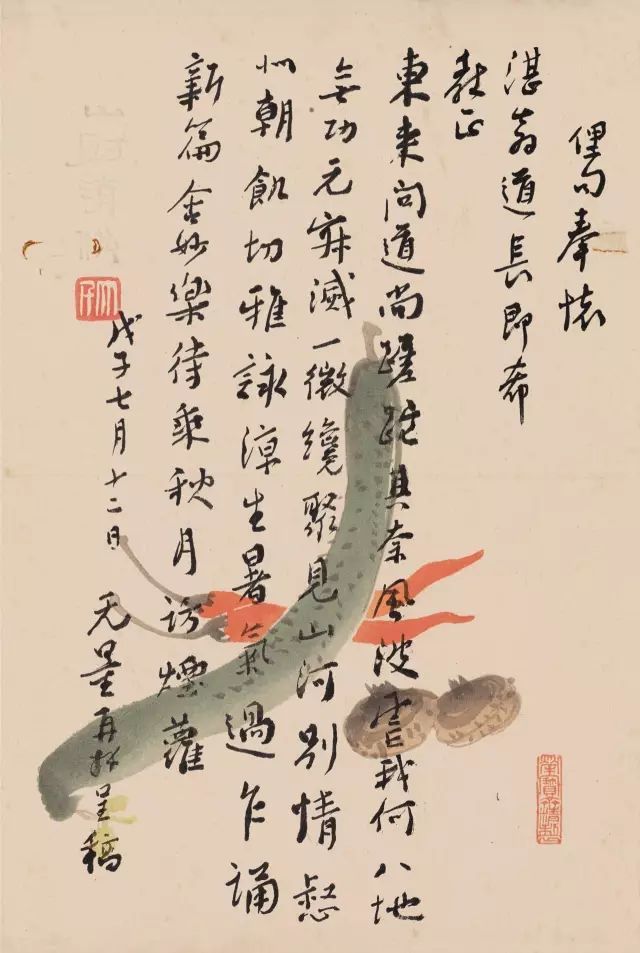 俚句奉懷
湛翁道長即希
教正
東來問道尚蹉跎其奈風波害我何八地
無功元寂滅一微纔聚見山河別情惄
似朝飢切雅詠涼生暑氣過乍誦
新篇妙樂待乘秋月訪煙蘿
戊子七月十二日 无量再拜呈稿